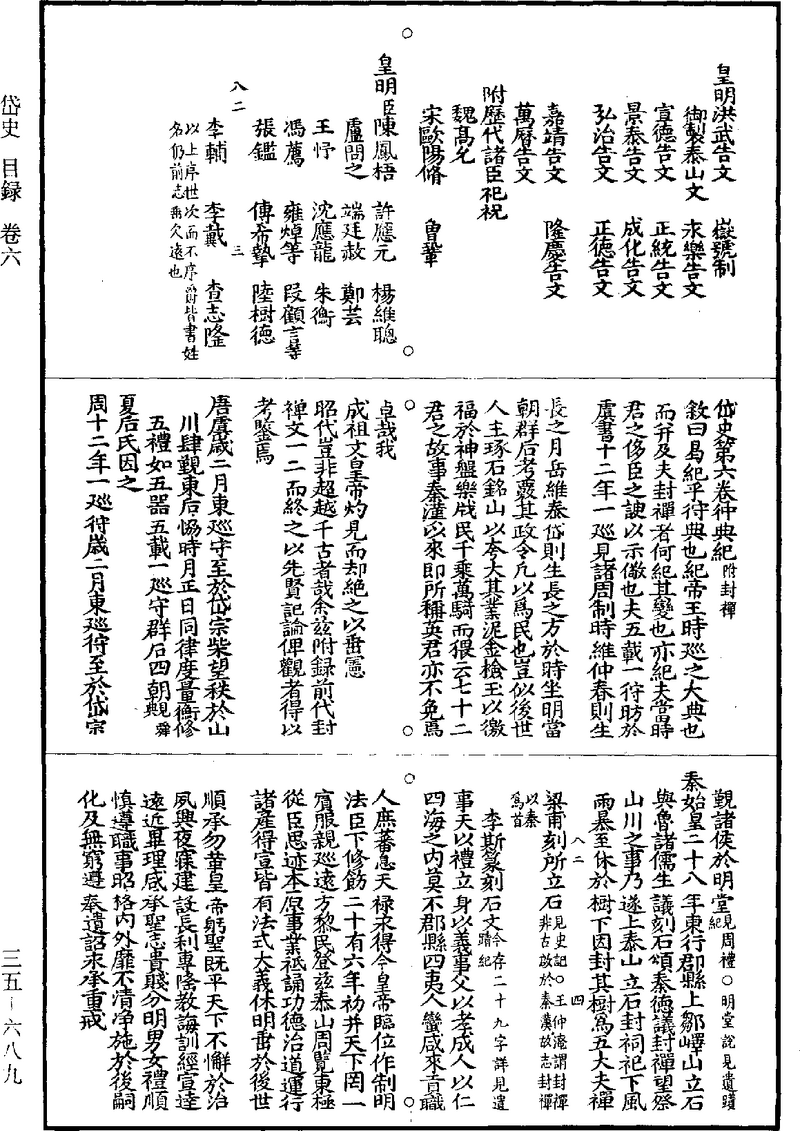 皇明洪武告文　嶽號制
御製泰山文　永樂告文
宣德告文　正統告文
景泰告文　成化告文
弘治告文　正德告文
嘉靖告文　隆慶告文
萬曆告文
附歷代諸臣祀祝
魏高允
宋歐陽脩　曾鞏
皇明臣陳鳳梧　許應元　楊維聰
盧問之　端廷赦　鄭芸
王忬　沈應龍　朱衡
馮薦　雍焯等　段顧言等
張鑑　傅希摯　陸樹德
八二　三
李輔　李戴　查志隆
以上序世次而不序爵皆書姓
名仍前志垂久遠也
岱史第六卷狩典紀附封禪
敘曰曷紀乎狩典也紀帝王時巡之大典也
而并及夫封禪者何紀其變也亦紀夫當時
君之侈臣之諛以示儆也夫五載一狩昉於
虞書十二年一巡見諸周制時維仲春則生
長之月岳維泰岱則生長之方於時坐明當
朝群后考覈其政令凡以為民也豈似後世
人主琢石銘山以夸大其業泥金檢玉以徼
福於神盤樂戕民千乘萬騎而猥云七十二
君之故事秦漢以來即所稱英君亦不免焉
卓哉我
成祖文皇帝灼見而却絕之以垂憲
昭代豈非超越千古者哉余茲附錄前代封
禪文一二而終之以先賢記論俾觀者得以
考鑒焉
唐虞歲二月東巡守至於岱宗柴望秩於山
川肆覲東后恊時月正日同律度量衡修
五禮如五器五載一巡守群后四朝舜典
夏后氏因之
周十二年一巡狩歲二月東巡狩至於岱宗
覲諸侯於明堂見周禮○明堂說見遺蹟紀
秦始皇二十八年東行郡縣上鄒嶧山立石
與魯諸儒生議刻石頌秦德議封禪望祭
山川之事乃遂上泰山立石封祠祀下風
雨暴至休於樹下因封其樹為五大夫禪
八二　四
梁甫刻所立石見史記○王仲淹謂封禪非古啟於秦漢故志封禪以秦為首
李斯篆刻石文今存二十九字詳見遺蹟紀
事天以禮立身以義事父以孝成人以仁
四海之内莫不郡縣四夷八蠻咸來貢職
人庶蕃息天祿永得今皇帝臨位作制明
法臣下修飭二十有六年初并天下罔不
賓服親巡遠方黎民登茲泰山周覽東極
從臣思迹本原事業祗誦功德治道運行
諸產得宣皆有法式大義休明垂於後世
順承勿革皇帝躬聖既平天下不懈於治
夙興夜寐建設長利專隆教誨訓經宣達
遠近畢理咸承聖志貴賤分明男女禮順
慎遵職事昭格内外靡不清淨施於後嗣
化及無窮遵奉遺詔永承重戒
岱史　目録　卷六
三五－六八九